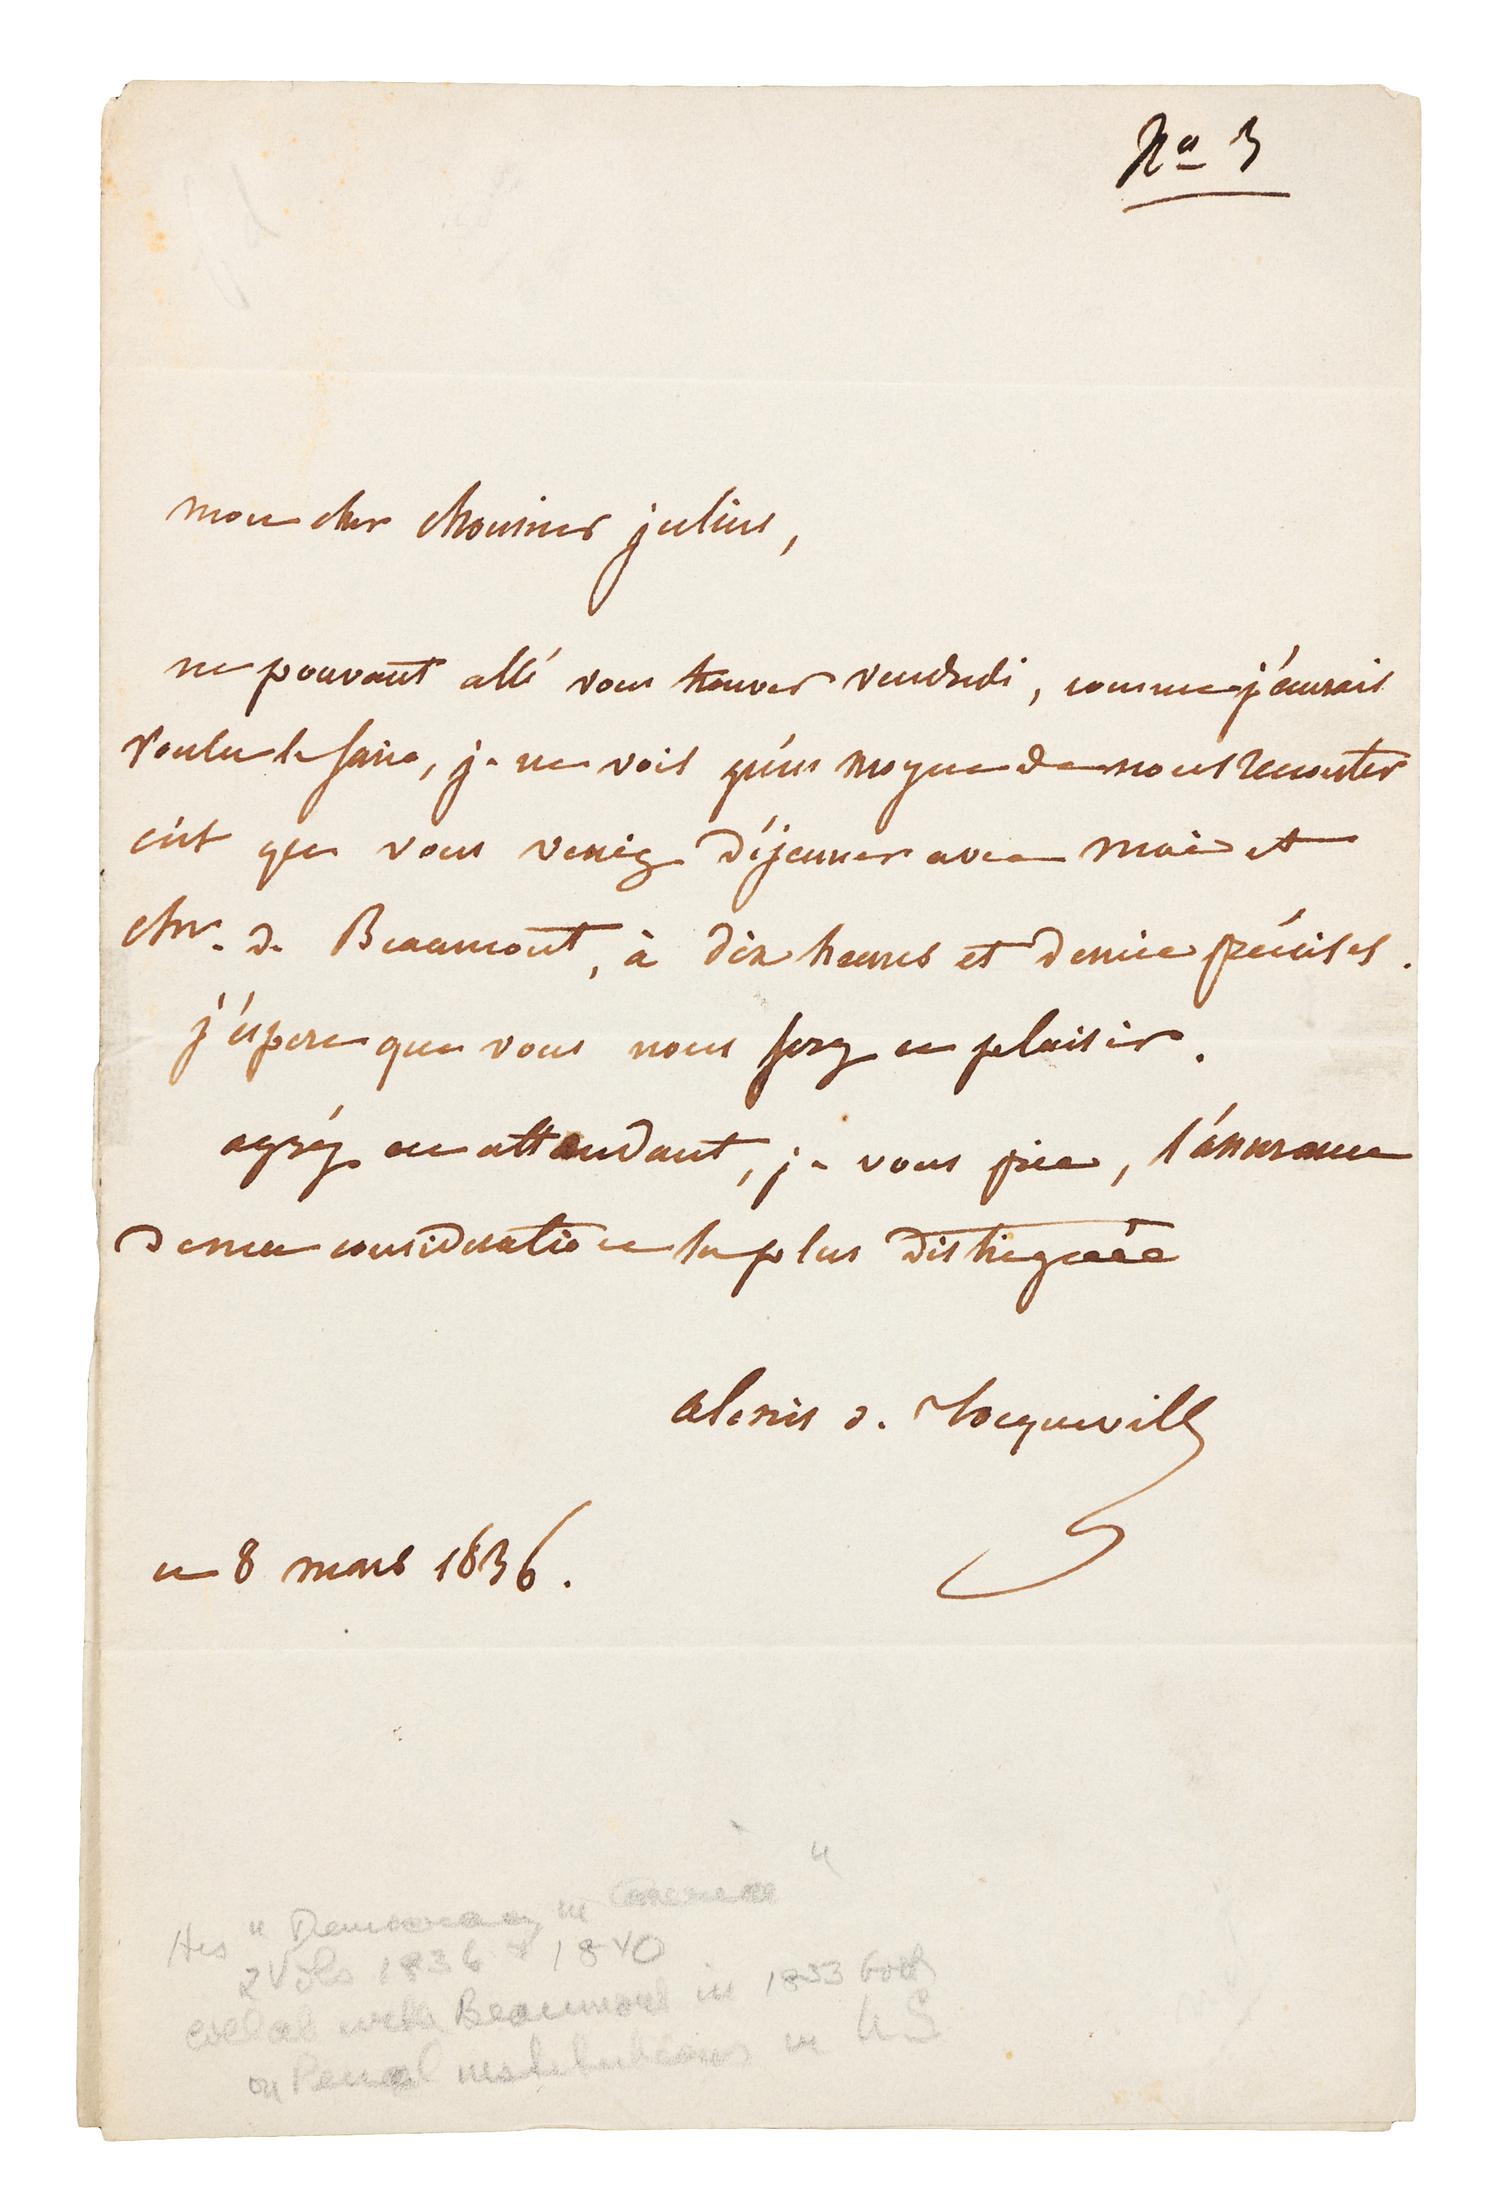 No 3
mon cher Monsieur julius,
ne pouvant allé vous trouver vendredi, comme j'aurais
voulu le faire, je ne vois qu'un moyen de nous rencontrer
c'est que vous veniez déjeuner avec moi et
Mr. de Beaumont, à dix heures et demie précises.
j'espere que vous nous ferez ce plaisir.
agréez en attendant, je vous prie, l'assurance
de ma consideration la plus distinguée
alexis de Tocqueville
ce 8 mars 1836.
His "Democracy in America"
2 Vols 1836 & 1840
collab with Beaumont in 1833 book
on Penal institutions in US